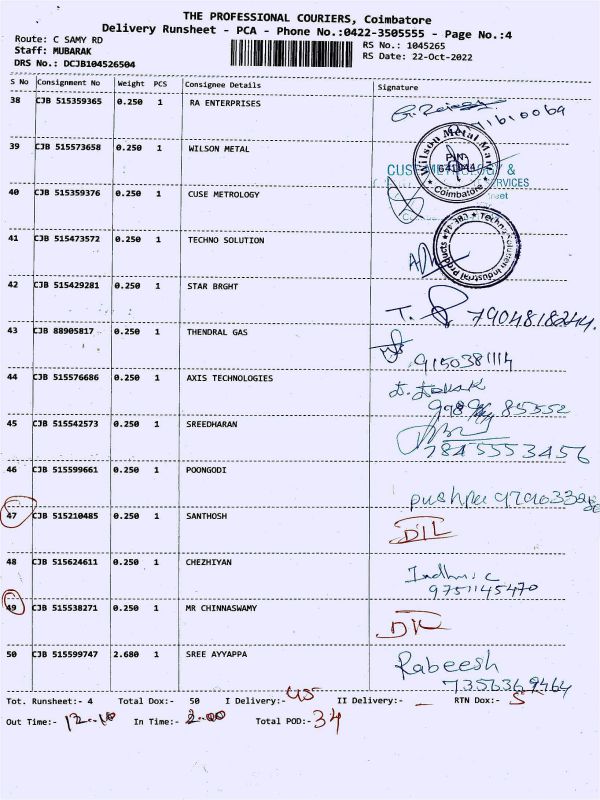 THE PROFESSIONAL COURIERS, Coimbatore
Delivery Runsheet - PCA - Phone No.:0422-3505555 - Page No.:4
Route: C SAMY RD
RS No.: 1045265
Staff: MUBARAK
RS Date: 22-Oct-2022
DRS No.: DCJB104526504
S No Consignment No Weight PCS Consignee Details Signature
38 CJB 515359365 0.250 1 RA ENTERPRISES
39 CJB 515573658 0.250 1 WILSON METAL
Wilson Metal Mart
PIN
641044
Coimbatore
40 CJB 515359376 0.250 1 CUSE METROLOGY
41 CJB 515473572 0.250 1 TECHNO SOLUTION
Industrial Products
42 CJB 515429281 0.250 1 STAR BRGHT
T. 7904818244.
43 CJB 88905817 0.250 1 THENDRAL GAS
9150381114
44 CJB 515576686 0.250 1 AXIS TECHNOLOGIES
85552
45 CJB 515542573 0.250 1 SREEDHARAN
7845553456
46 CJB 515599661 0.250 1 POONGODI
pushpa
47 CJB 515210485 0.250 1 SANTHOSH
D/L
48 CJB 515624611 0.250 1 CHEZHIYAN
Indhu. C
9751145470
49 CJB 515538271 0.250 1 MR CHINNASWAMY
D/L
50 CJB 515599747 2.680 1 SREE AYYAPPA
Rabeesh
7356369464
Tot. Runsheet:- 4 Total Dox:- 50 I Delivery:- 45 II Delivery:- - RTN Dox:- 5
Out Time:- 12-10 In Time:- 2-00 Total POD:- 34